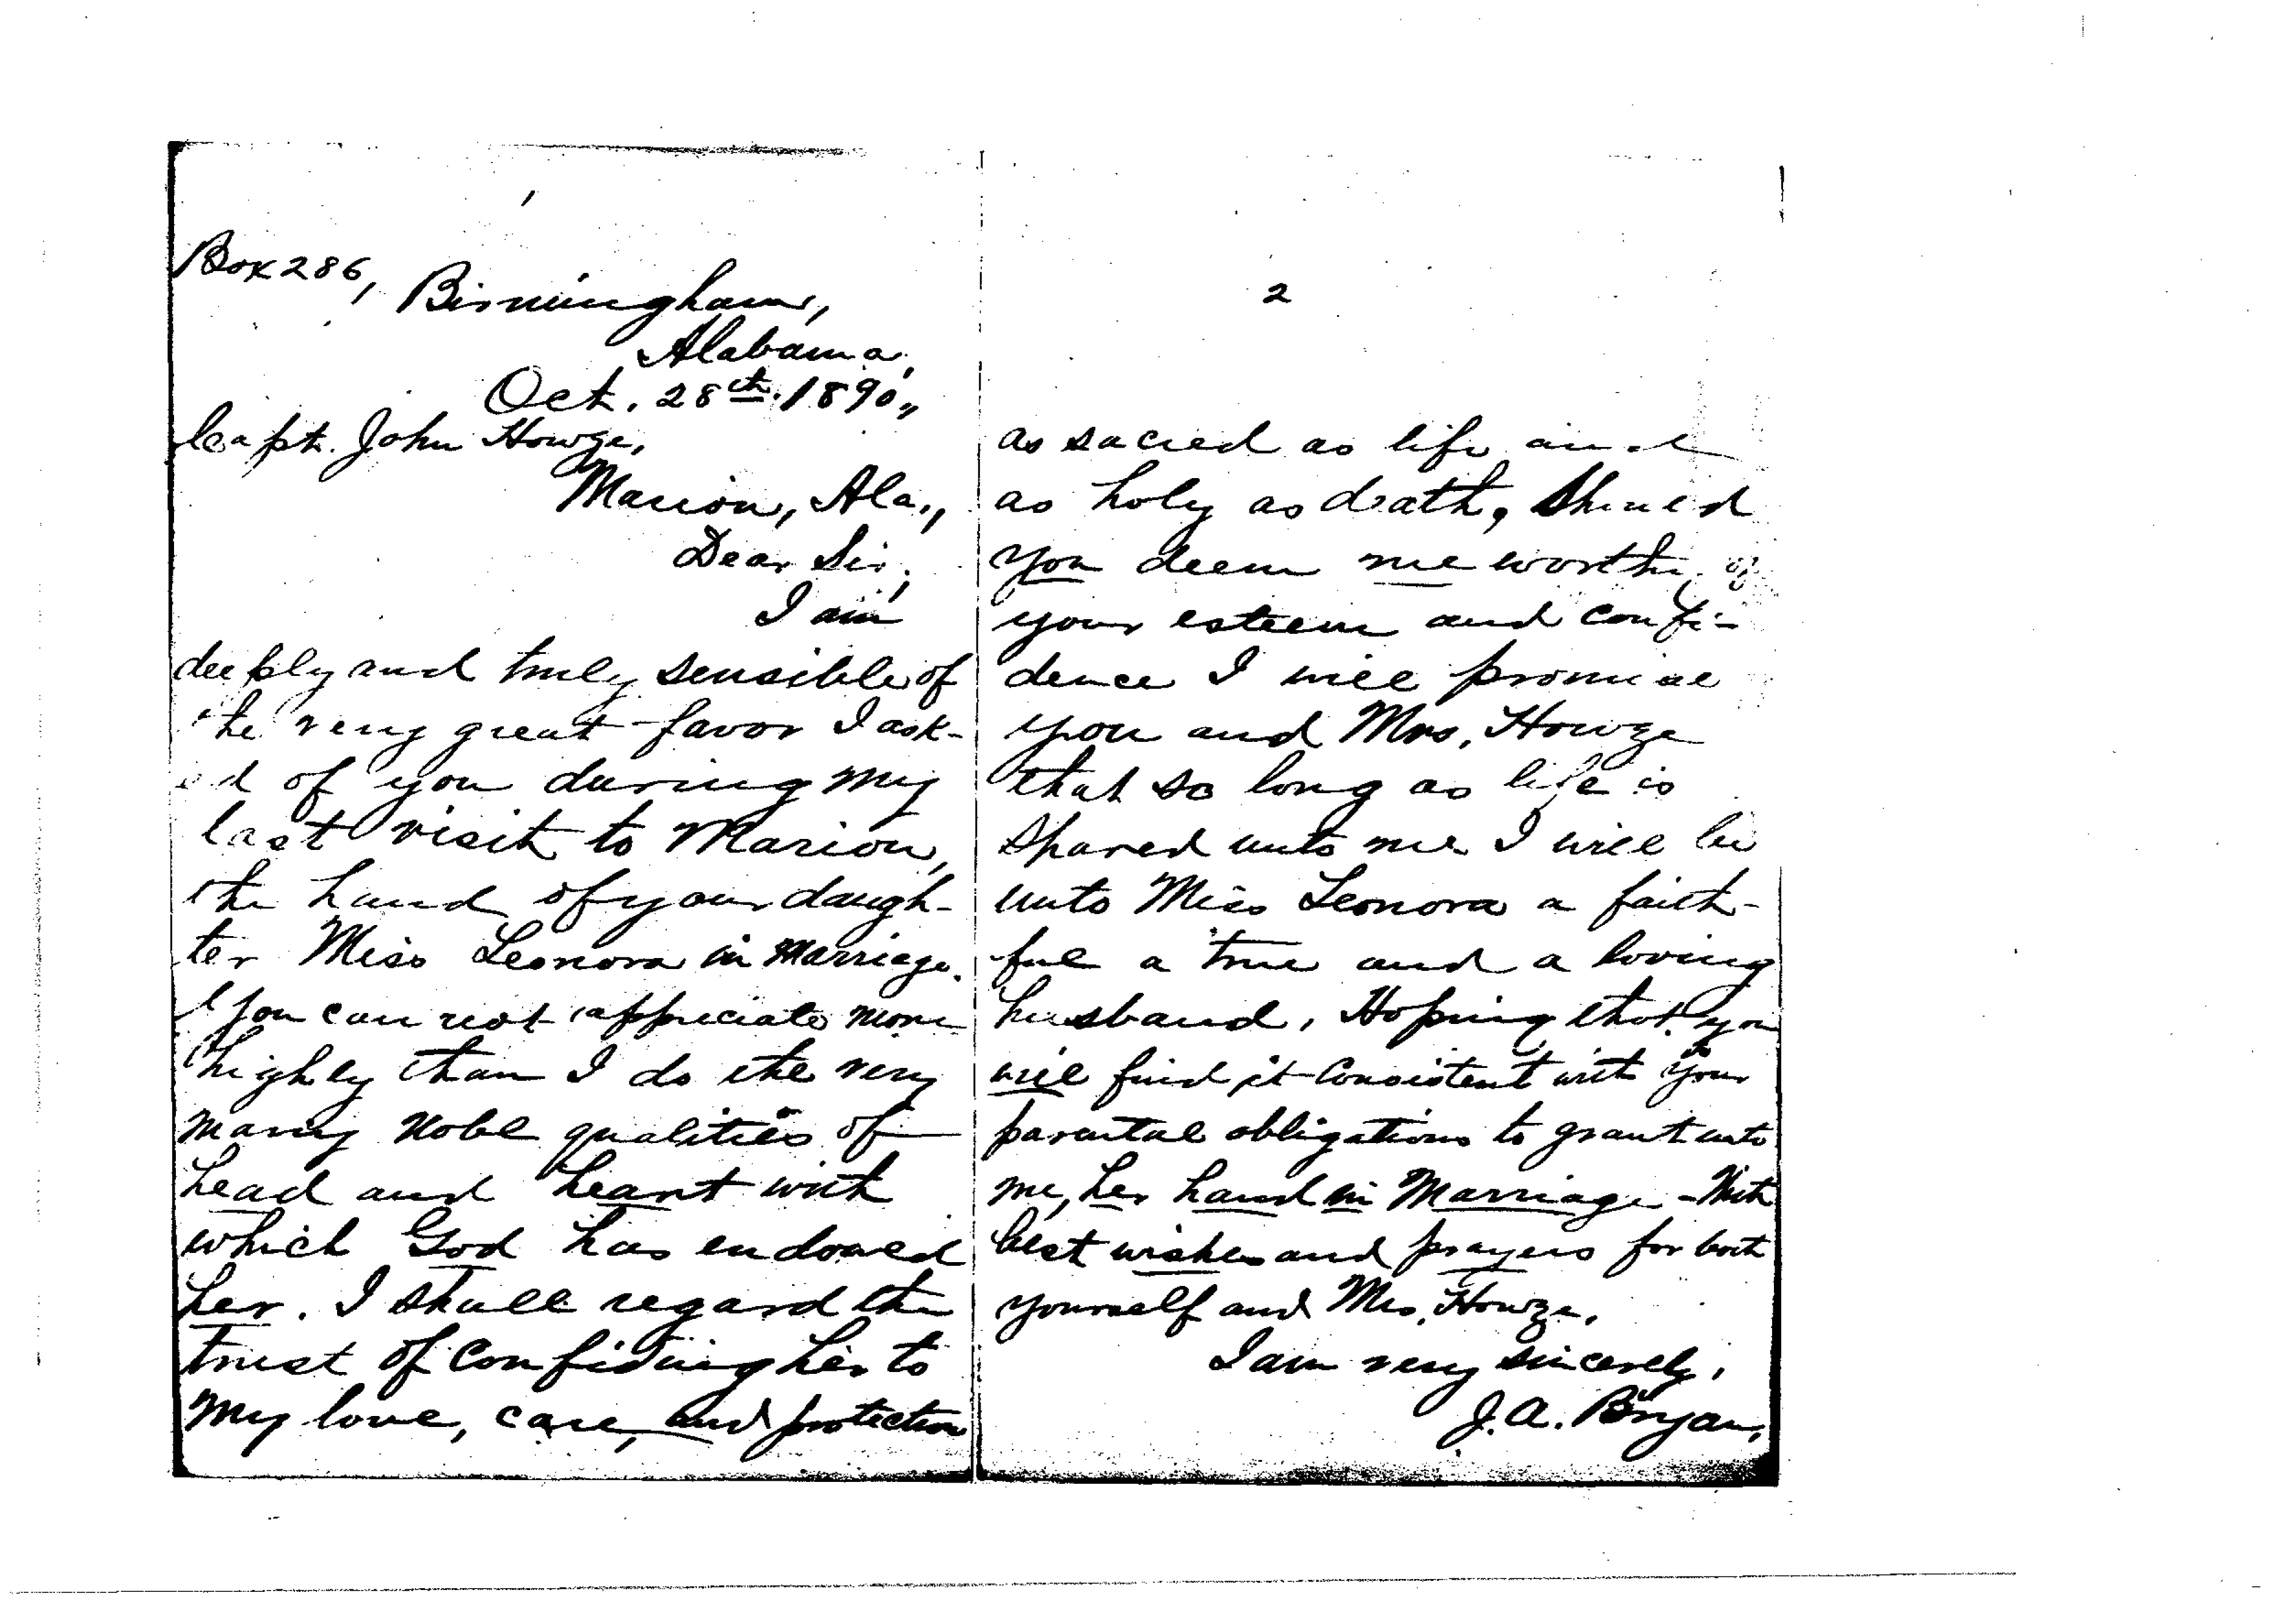 1
Box 286,
Birmingham,
Alabama,
Oct. 28th. 1890,,
Capt. John Howze,
Marion, Ala.,
Dear Sir,
I am
deeply and truly sensible of
the very great favor I ask-
ed of you during my
last visit to Marion,
the hand of your daugh-
ter Miss Leonora in marriage.
You can not appreciate more
highly than I do the very
many noble qualities of
head and heart with
which God has endowed
her. I shall regard the
trust of confiding her to
my love, care, and protection
2
as sacred as life and
as holy as death, Should
you deem me worthy of
your esteem and confi-
dence I will promise
you and Mrs. Howze
that so long as life is
spared unto me I will be
unto Miss Leonora a faith-
ful a true and a loving
husband. Hoping that you
will find it consistent with your
parental obligations to grant unto
me, her hand in Marriage - With
best wishes and prayers for both
yourself and Mrs. Howze,
I am very sincerely,
J. A. Bryan.